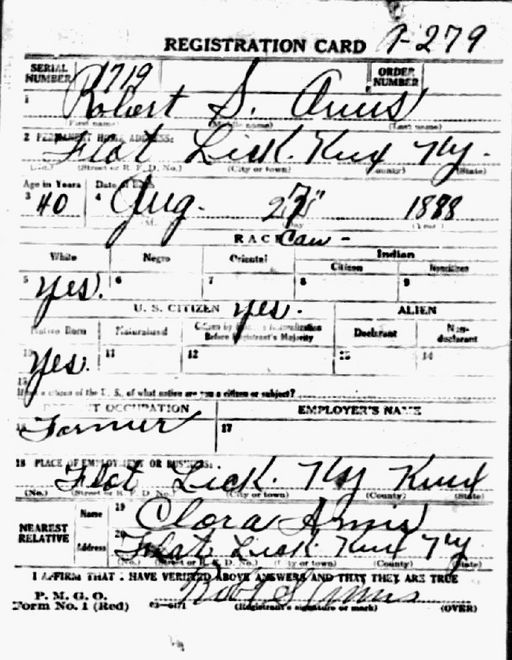 REGISTRATION CARD A-279
SERIAL NUMBER 1719 ORDER NUMBER
1 Robert S. Amis
First name) (Middle name) (Last name)
2 PERMANENT HOME ADDRESS:
Flat Lick. Knx Ky.
(No.) (Street or R. F. D. No.) (City or town) (County) (State)
Age in Years Date of Birth
3 40 4 Aug. 27" 1878
(Day) (Year)
RACE Cau -
White Negro Oriental Indian
Citizen Noncitizen
5 yes. 6 7 8 9
U. S. CITIZEN yes. ALIEN
Native Born Naturalized Citizen by Father's Naturalization Before Registrant's Majority Declarant Non-declarant
10 yes. 11 12 13 14
15 If not a citizen of the U. S., of what nation are you a citizen or subject?
PRESENT OCCUPATION EMPLOYER'S NAME
16 Farmer 17
18 PLACE OF EMPLOYMENT OR BUSINESS:
Flat Lick. Ky Knx
(No.) (Street or R. F. D. No.) (City or town) (County) (State)
NEAREST RELATIVE
Name 19 Clora Amis
Address 20 Flat Lick Knx Ky.
(No.) (Street or R. F. D. No.) (City or town) (County) (State)
I AFFIRM THAT I HAVE VERIFIED ABOVE ANSWERS AND THAT THEY ARE TRUE
P. M. G. O.
Form No. 1 (Red) 03-6171 Robt S Amis
(Registrant's signature or mark) (OVER)